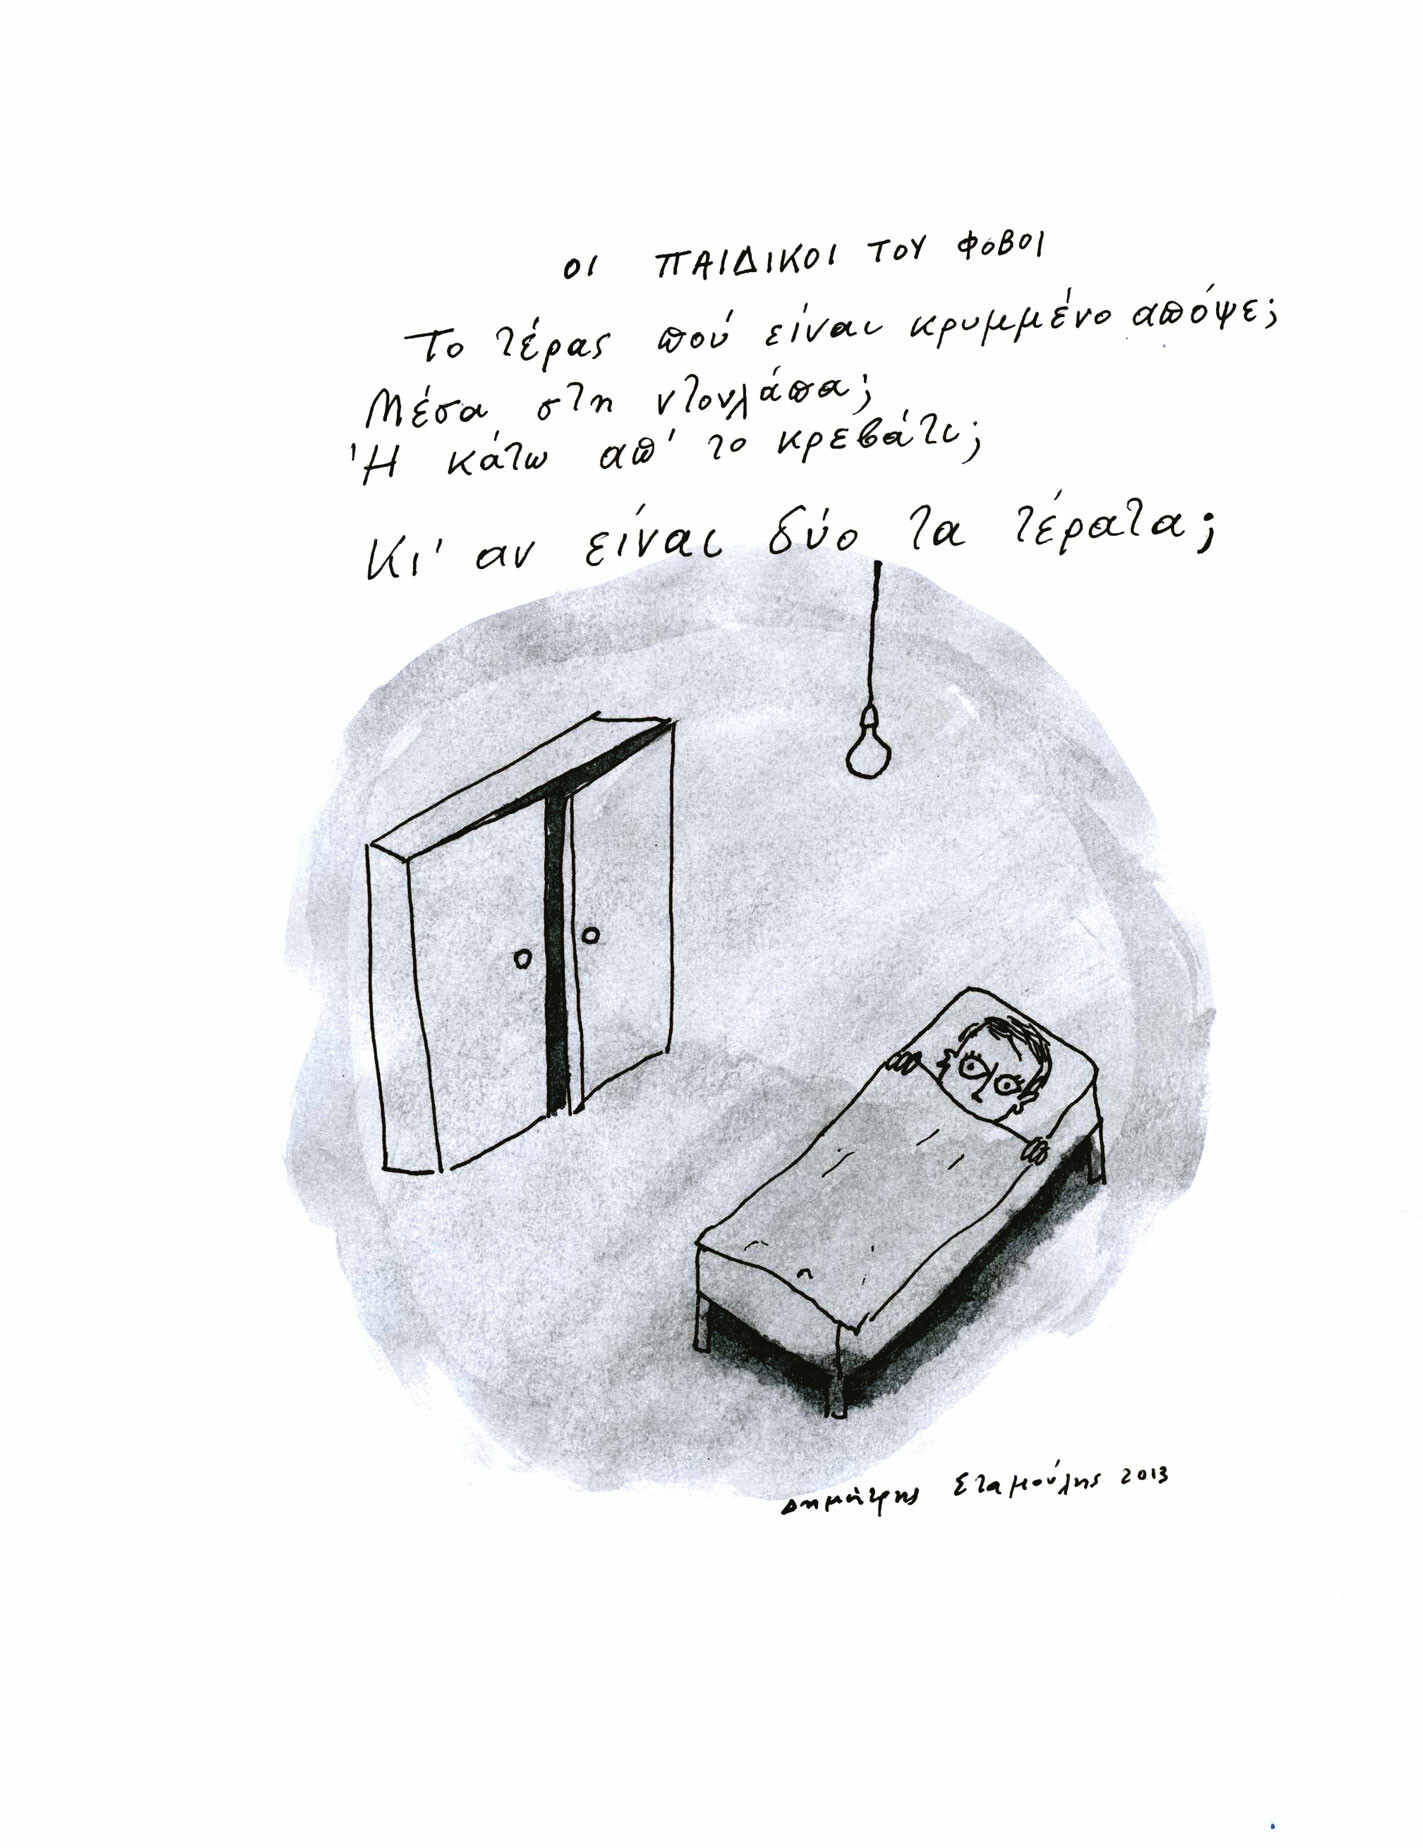 ΟΙ ΠΑΙΔΙΚΟΙ ΤΟΥ ΦΟΒΟΙ
Το τέρας πού είναι κρυμμένο απόψε;
Μέσα στη ντουλάπα;
Ή κάτω απ' το κρεβάτι;
Κι' αν είναι δύο τα τέρατα;
Δημήτρης Σταμούλης 2013